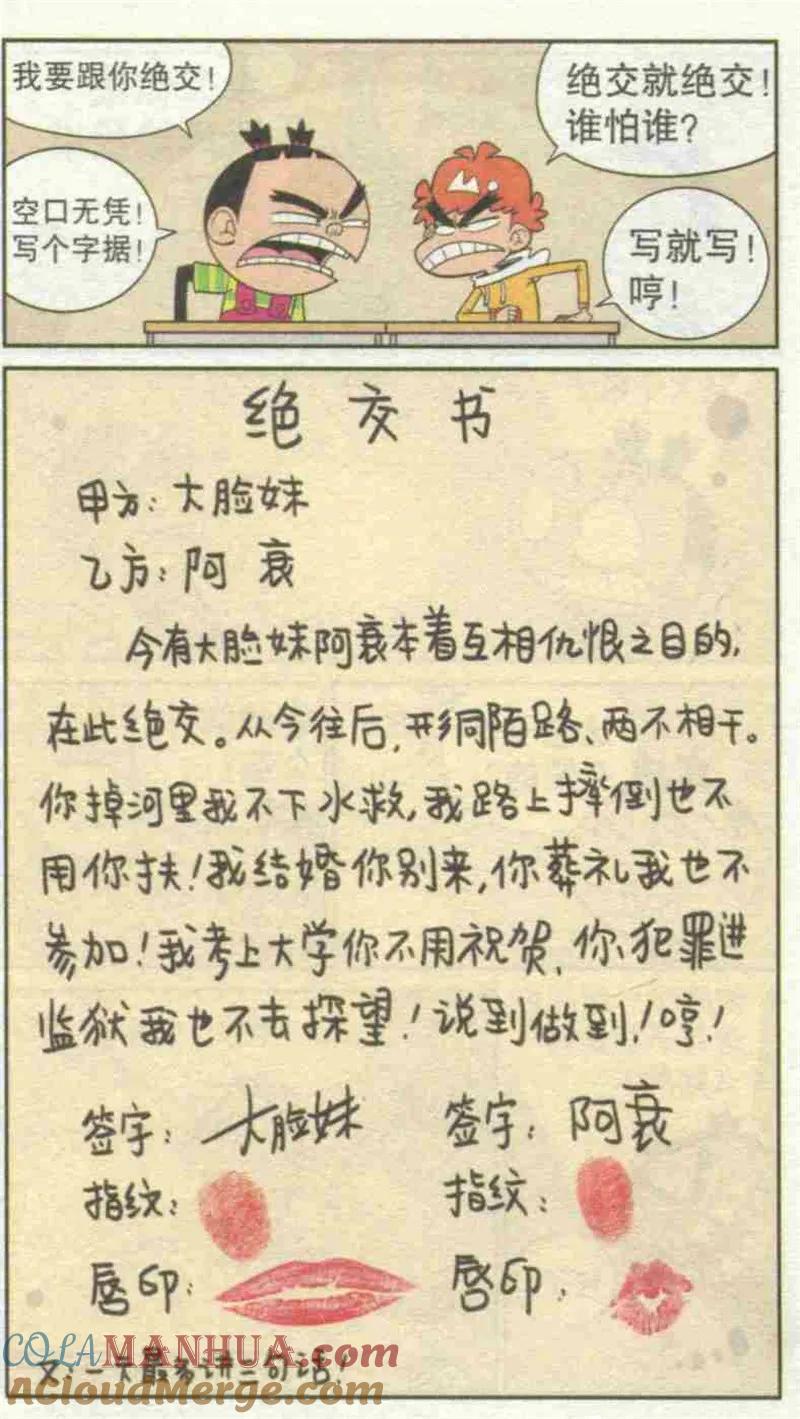 我要跟你绝交!
绝交就绝交!
谁怕谁?
空口无凭!
写个字据!
写就写!
哼!
绝交书
甲方:大脸妹
乙方:阿衰
今有大脸妹阿衰本着互相仇恨之目的,
在此绝交。从今往后,形同陌路、两不相干。
你掉河里我不下水救,我路上摔倒也不
用你扶!我结婚你别来,你葬礼我也不
参加!我考上大学你不用祝贺,你犯罪进
监狱我也不去探望!说到做到!哼!
签字:大脸妹 签字:阿衰
指纹: 指纹:
唇印: 唇印:
COLAMANHUA.COM
又:一天最多讲三句话!
AcloudMerge.com